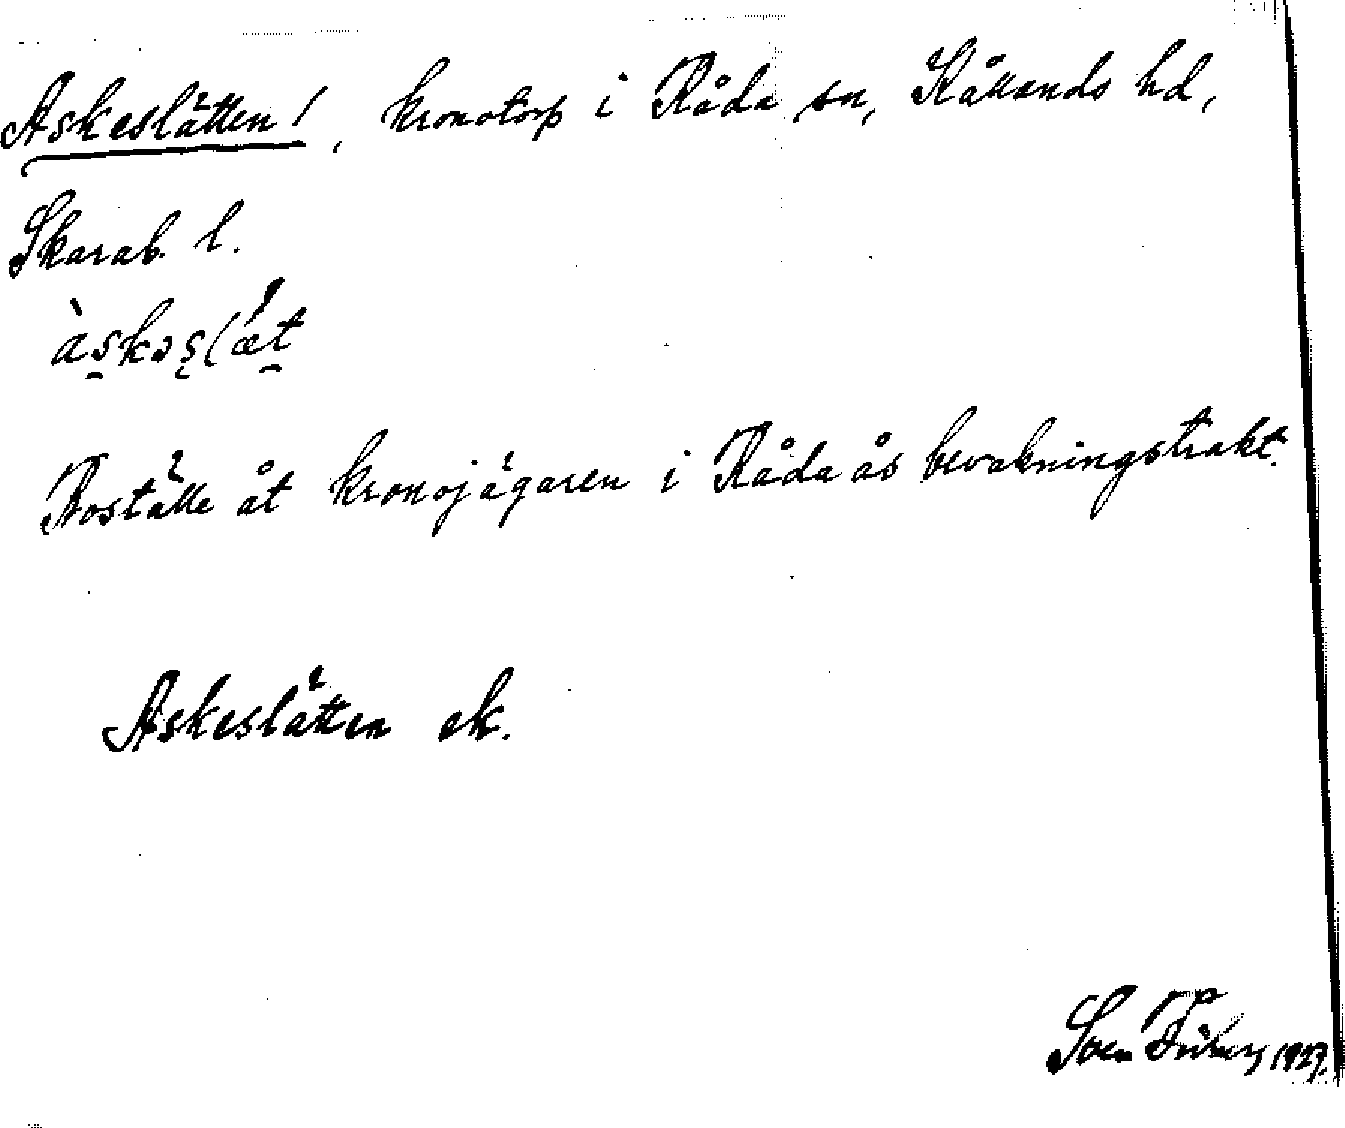 Askeslätten!, kronotorp i Råda sn, Kållands hd,
Skarab. l.
àskəslǽt
Boställe åt kronojägaren i Råda ås bevakningstrakt.
Askeslätten ek.
Sven Friberg 1927.